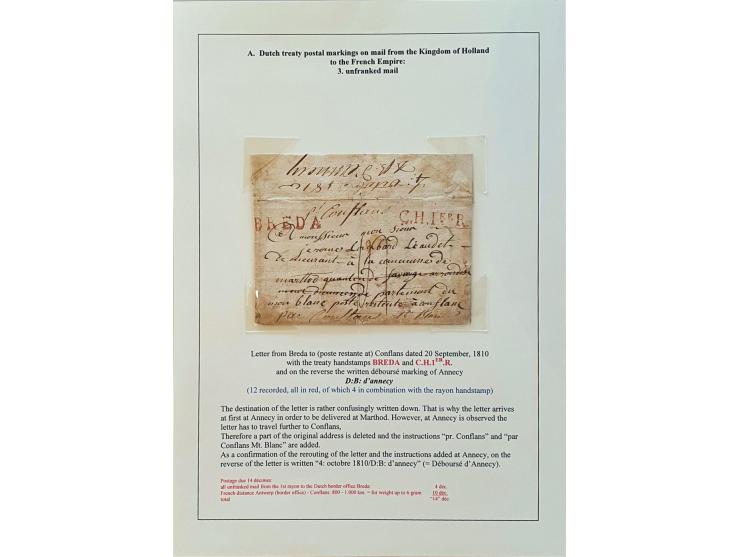 A. Dutch treaty postal markings on mail from the Kingdom of Holland
to the French Empire:
3. unfranked mail
Conflans
BREDA C.H.1ER R.
A monsieur mon sieur
demeurant à la commune de
marthod quanton de
partement du
mon blanc poste restante à conflans
par Conflans Mt Blanc
Letter from Breda to (poste restante at) Conflans dated 20 September, 1810
with the treaty handstamps BREDA and C.H.1ER.R.
and on the reverse the written déboursé marking of Annecy
D:B: d'annecy
(12 recorded, all in red, of which 4 in combination with the rayon handstamp)
The destination of the letter is rather confusingly written down. That is why the letter arrives
at first at Annecy in order to be delivered at Marthod. However, at Annecy is observed the
letter has to travel further to Conflans,
Therefore a part of the original address is deleted and the instructions “pr. Conflans” and “par
Conflans Mt. Blanc” are added.
As a confirmation of the rerouting of the letter and the instructions added at Annecy, on the
reverse of the letter is written “4: octobre 1810/D:B: d’annecy” (= Déboursé d’Annecy).
Postage due 14 décimes:
all unfranked mail from the 1st rayon to the Dutch border office Breda 4 déc.
French distance Antwerp (border office) - Conflans: 800 - 1.000 km. = for weight up to 6 gram 10 déc.
total "14" déc